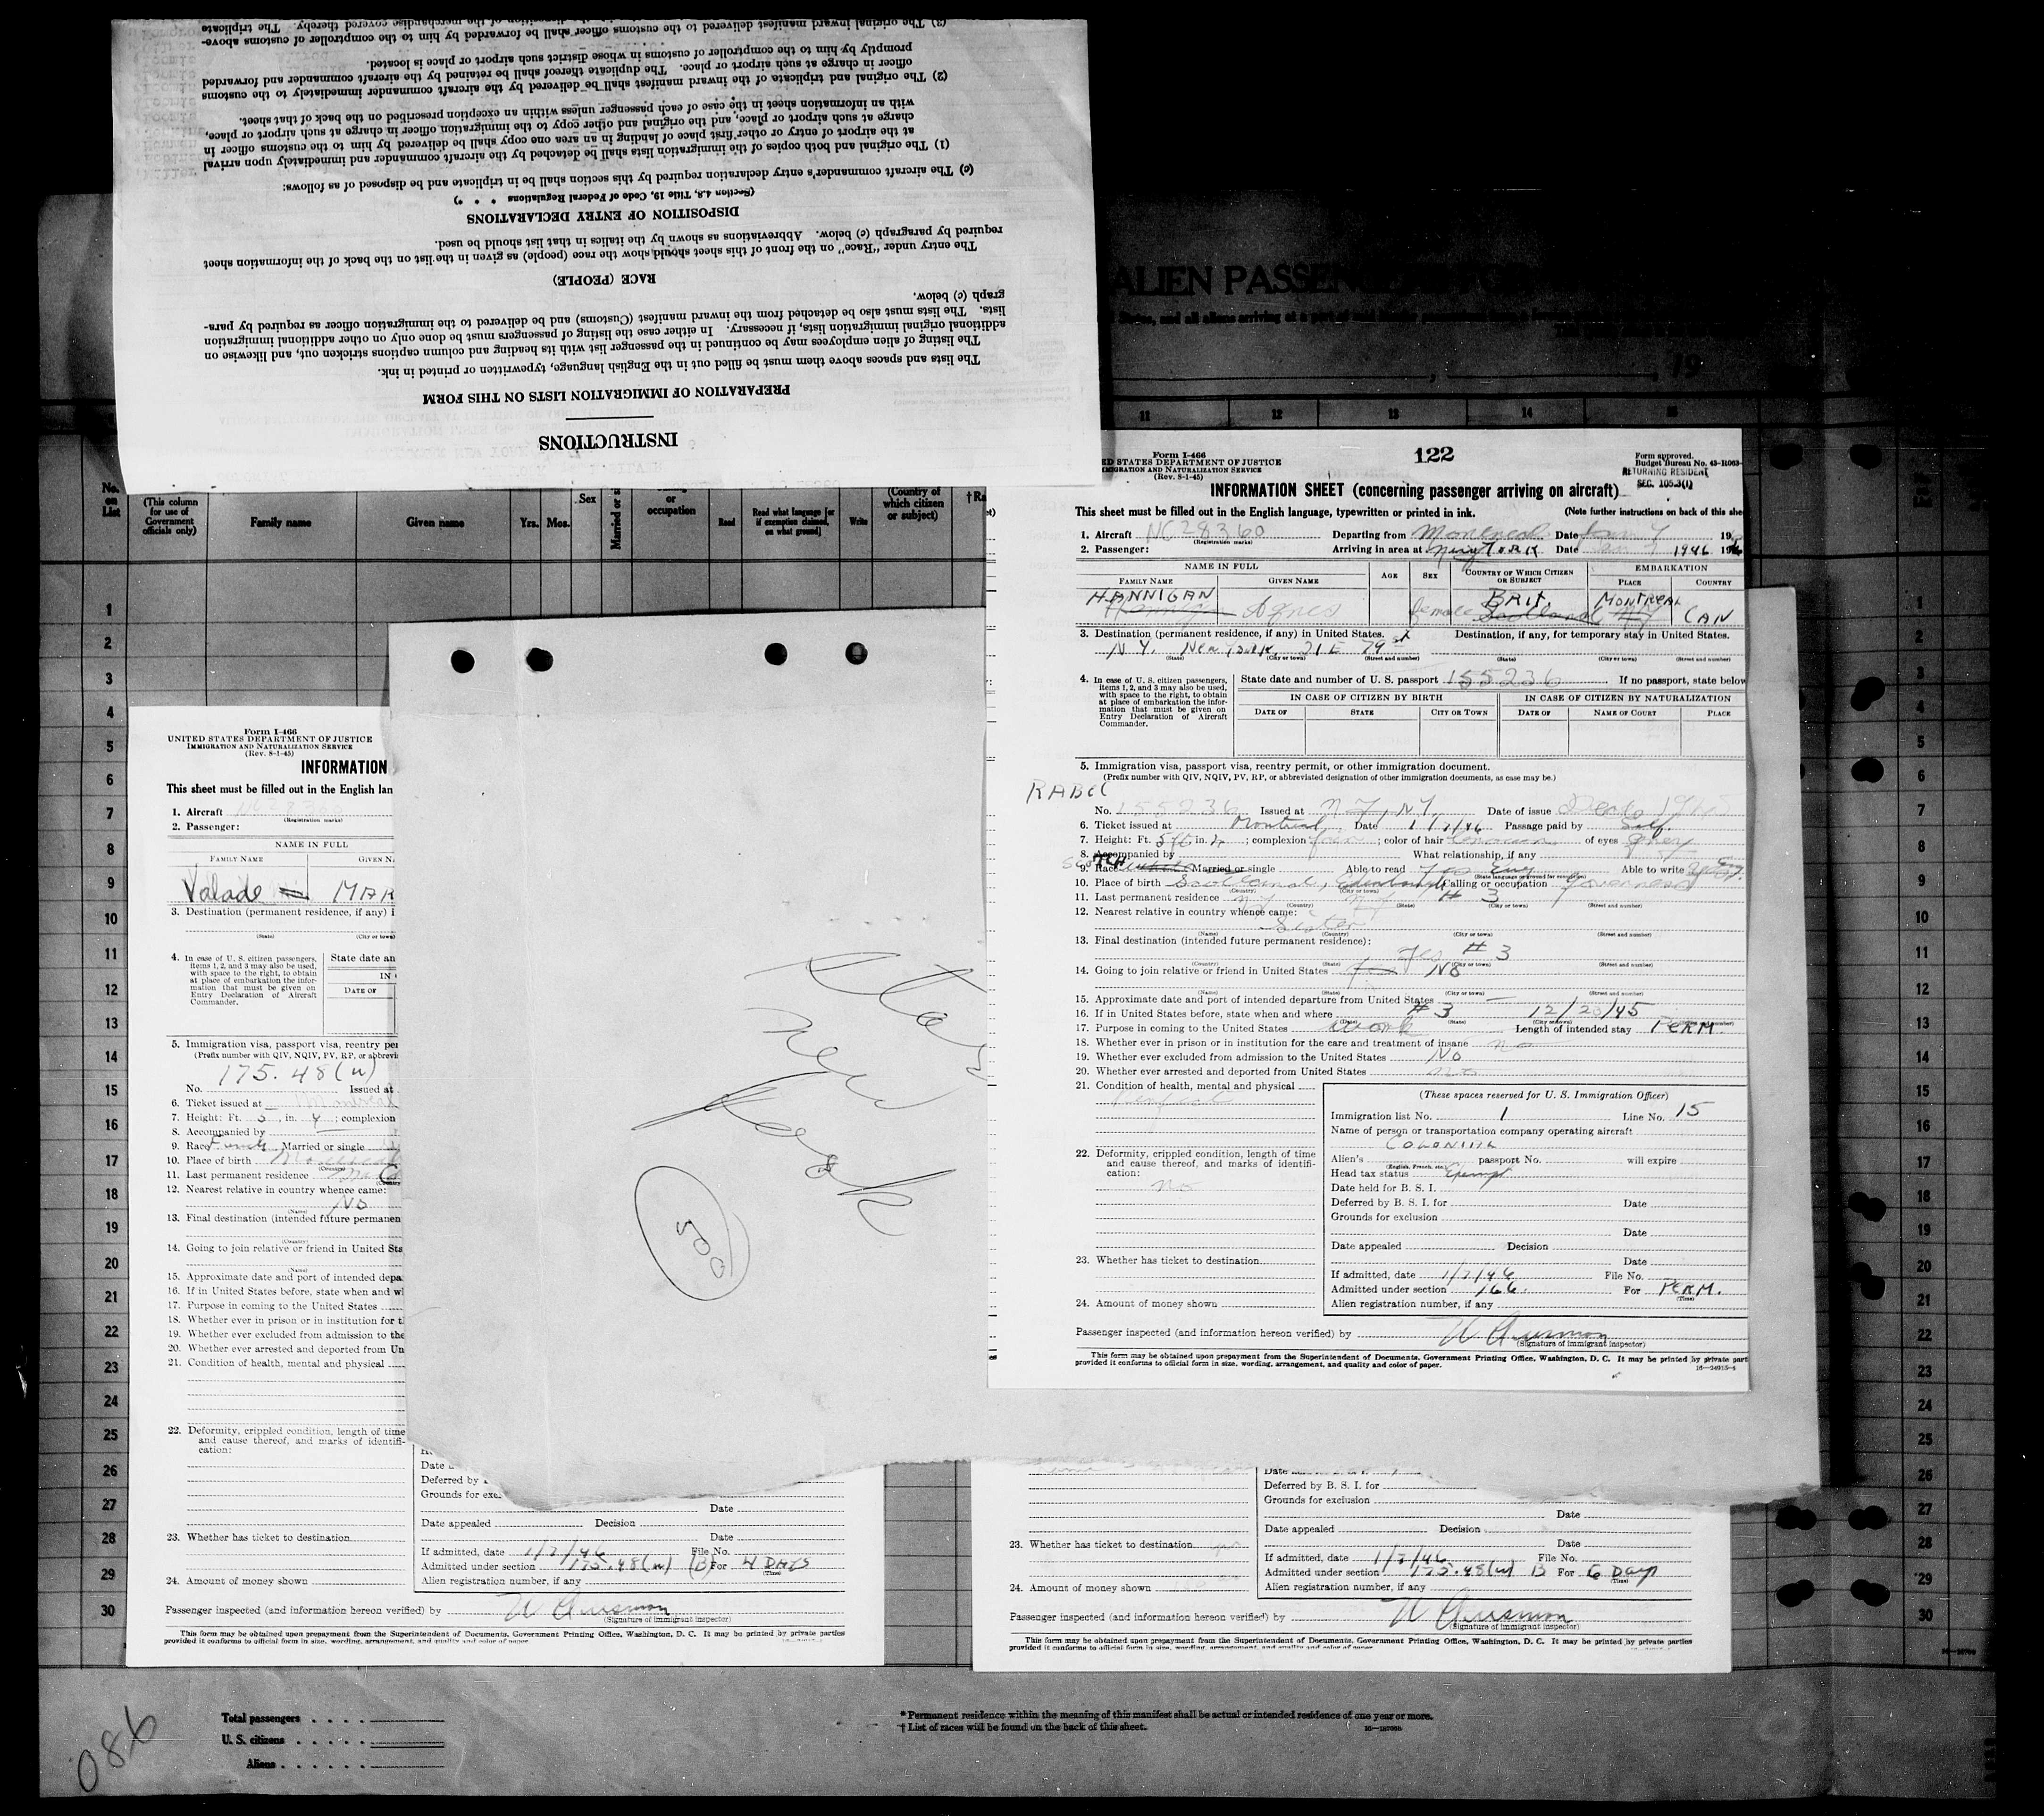 INSTRUCTIONS
PREPARATION OF IMMIGRATION LISTS ON THIS FORM
The lists and spaces above them must be filled out in the English language, typewritten or printed in ink.
The listing of alien employees may be continued in the passenger list with its heading and column captions stricken out, and likewise on
additional original immigration lists, if necessary. In either case the listing of passengers must be done only on other additional immigration
lists. The lists must also be detached from the inward manifest (Customs) and be delivered to the immigration officer as required by para-
graph (c) below.
RACE (PEOPLE)
The entry under "Race" on the front of this sheet should show the race (people) as given in the list on the back of the information sheet
required by paragraph (c) below. Abbreviations as shown by the italics in that list should be used.
DISPOSITION OF ENTRY DECLARATIONS
(Section 4.8, Title 19, Code of Federal Regulations * * *)
(c) The aircraft commander's entry declaration required by this section shall be in triplicate and be disposed of as follows:
(1) The original and both copies of the immigration lists shall be detached by the aircraft commander and immediately upon arrival
at the airport of entry or other first place of landing in an area one copy shall be delivered by him to the customs officer in
charge at such airport or place, and the original and other copy to the immigration officer in charge at such airport or place,
with an information sheet in the case of each passenger unless within an exception prescribed on the back of that sheet.
(2) The original and triplicate of the inward manifest shall be delivered by the aircraft commander immediately to the customs
officer in charge at such airport or place. The duplicate thereof shall be retained by the aircraft commander and forwarded
promptly by him to the comptroller of customs in whose district such airport or place is located.
(3) The original inward manifest delivered to the customs officer shall be forwarded by him to the comptroller of customs above-
disposition of the merchandise covered thereby. The triplicate
ALIEN PASSENGERS
States, and all aliens arriving at a port of
19
11 12 13 14 15
No. on List
(This column for use of Government officials only)
Family name
Given name
Yrs. Mos.
Sex
or occupation
Read
Read what language [or if exemption claimed, on what ground]
Write
(Country of which citizen or subject)
Form I-466
UNITED STATES DEPARTMENT OF JUSTICE
IMMIGRATION AND NATURALIZATION SERVICE
(Rev. 8-1-45)
INFORMATION
This sheet must be filled out in the English lan
1. Aircraft
(Registration marks)
2. Passenger:
NAME IN FULL
FAMILY NAME GIVEN N
Valade MAR
3. Destination (permanent residence, if any) i
(State) (City or tow
4. In case of U. S. citizen passengers,
items 1, 2, and 3 may also be used,
with space to the right, to obtain
at place of embarkation the infor-
mation that must be given on
Entry Declaration of Aircraft
Commander.
State date an
IN
DATE OF
5. Immigration visa, passport visa, reentry pe
(Prefix number with QIV, NQIV, PV, RP, or abbrevi
175.48(u)
No. Issued at
6. Ticket issued at Montreal
7. Height: Ft. 5, in. 4; complexion
8. Accompanied by
9. Race French Married or single
10. Place of birth Montreal
11. Last permanent residence
12. Nearest relative in country whence came:
No
13. Final destination (intended future permanen
14. Going to join relative or friend in United Sta
15. Approximate date and port of intended depa
16. If in United States before, state when and w
17. Purpose in coming to the United States
18. Whether ever in prison or in institution for t
19. Whether ever excluded from admission to the
20. Whether ever arrested and deported from Un
21. Condition of health, mental and physical
22. Deformity, crippled condition, length of time
and cause thereof, and marks of identifi-
cation:
Deferred by
Grounds for exc
Date
Date appealed Decision
23. Whether has ticket to destination
Date
If admitted, date 1/7/46 File No.
Admitted under section 175.48(u) (B) For 4 DAYS
(Time)
24. Amount of money shown
Alien registration number, if any
Passenger inspected (and information hereon verified) by
(Signature of immigrant inspector)
This form may be obtained upon prepayment from the Superintendent of Documents, Government Printing Office, Washington, D. C. It may be printed by private parties
provided it conforms to official form in size, wording, arrangement, and quality and color of paper.
New York
Form I-466
122
Form approved.
Budget Bureau No. 43-R063-
ED STATES DEPARTMENT OF JUSTICE
MIGRATION AND NATURALIZATION SERVICE
(Rev. 8-1-45)
RETURNING RESIDENT
SEC. 105.3(1)
INFORMATION SHEET (concerning passenger arriving on aircraft)
This sheet must be filled out in the English language, typewritten or printed in ink.
(Note further instructions on back of this she
1. Aircraft NC28360 Departing from Montreal Date Jan 7 19
(Registration marks)
2. Passenger: Arriving in area at New York Date Jan 7 1946 19
NAME IN FULL
AGE SEX COUNTRY OF WHICH CITIZEN OR SUBJECT
EMBARKATION
FAMILY NAME GIVEN NAME PLACE COUNTRY
HANNIGAN Agnes female BRIT. Scotland MONTREAL CAN
3. Destination (permanent residence, if any) in United States. Destination, if any, for temporary stay in United States.
N.Y. New York 21 E 79 st
(State) (City or town) (Street and number) (State) (City or town) (Street and number)
4. In case of U. S. citizen passengers,
items 1, 2, and 3 may also be used,
with space to the right, to obtain
at place of embarkation the infor-
mation that must be given on
Entry Declaration of Aircraft
Commander.
State date and number of U. S. passport 155236 If no passport, state below
IN CASE OF CITIZEN BY BIRTH IN CASE OF CITIZEN BY NATURALIZATION
DATE OF STATE CITY OR TOWN DATE OF NAME OF COURT PLACE
5. Immigration visa, passport visa, reentry permit, or other immigration document.
(Prefix number with QIV, NQIV, PV, RP, or abbreviated designation of other immigration documents, as case may be.)
No. 155236 Issued at N.Y., NY Date of issue Dec 6 1945
6. Ticket issued at Montreal Date 1/7/46 Passage paid by Self
7. Height: Ft. 5 in. 4; complexion fair; color of hair brown of eyes grey
8. Accompanied by What relationship, if any
9. Race SCOTCH white Married or single Able to read Yes Eng Able to write
10. Place of birth Scotland, Edinburgh Calling or occupation governess
11. Last permanent residence NY NY #3
12. Nearest relative in country whence came:
Sister
13. Final destination (intended future permanent residence):
Yes #3
14. Going to join relative or friend in United States No
15. Approximate date and port of intended departure from United States
16. If in United States before, state when and where #3 12/20/45
17. Purpose in coming to the United States work Length of intended stay PERM.
18. Whether ever in prison or in institution for the care and treatment of insane no
19. Whether ever excluded from admission to the United States No
20. Whether ever arrested and deported from United States no
21. Condition of health, mental and physical
Perfect
22. Deformity, crippled condition, length of time
and cause thereof, and marks of identifi-
cation:
no
23. Whether has ticket to destination
24. Amount of money shown
(These spaces reserved for U. S. Immigration Officer)
Immigration list No. 1 Line No. 15
Name of person or transportation company operating aircraft
COLONIAL
Alien's passport No. will expire
(English, French, etc.)
Head tax status Exempt
Date held for B. S. I.
Deferred by B. S. I. for Date
Grounds for exclusion
Date
Date appealed Decision
Date
If admitted, date 1/7/46 File No.
Admitted under section 166. For PERM.
(Time)
Alien registration number, if any
Passenger inspected (and information hereon verified) by
(Signature of immigrant inspector)
This form may be obtained upon prepayment from the Superintendent of Documents, Government Printing Office, Washington, D. C. It may be printed by private part
provided it conforms to official form in size, wording, arrangement, and quality and color of paper.
16—24915-4
Deferred by B. S. I. for
Grounds for exclusion
Date
Date appealed Decision
23. Whether has ticket to destination
Date
If admitted, date 1/7/46 File No.
Admitted under section 175.48(u) B For 6 Days
(Time)
24. Amount of money shown
Alien registration number, if any
Passenger inspected (and information hereon verified) by
(Signature of immigrant inspector)
This form may be obtained upon prepayment from the Superintendent of Documents, Government Printing Office, Washington, D. C. It may be printed by private parties
provided it conforms to official form in size, wording, arrangement, and quality and color of paper.
Total passengers
U. S. citizens
Aliens
* Permanent residence within the meaning of this manifest shall be actual or intended residence of one year or more.
† List of races will be found on the back of this sheet.
086